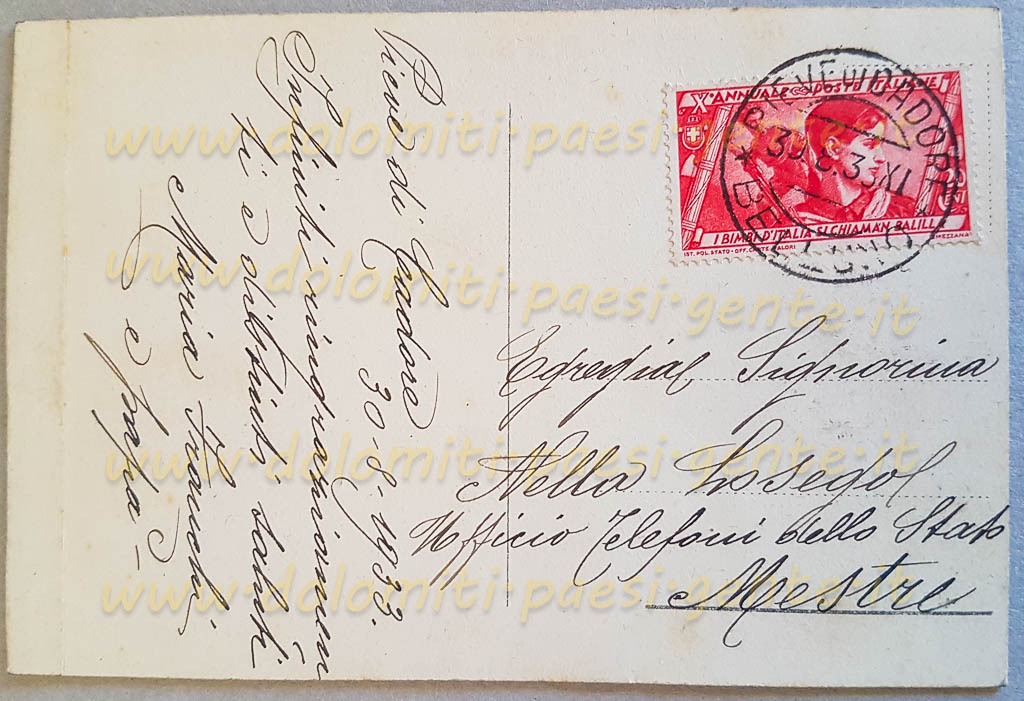 Pieve di Cadore
30-8-1933.
Infiniti ringraziamenti
ti e distinti saluti
Maria
e papà -
X° ANNUALE POSTE ITALIANE
I BIMBI D'ITALIA SI CHIAMAN BALILL
IST. POL. STATO - OFF. CARTE VALORI MEZZANA
PIEVE DI CADORE
30.8.33 XI
* BELLUNO *
Egregia Signorina
Nella
Ufficio Telefoni dello Stato
Mestre
www.dolomiti-paesi-gente.it
www.dolomiti-paesi-gente.it
www.dolomiti-paesi-gente.it
www.dolomiti-paesi-gente.it